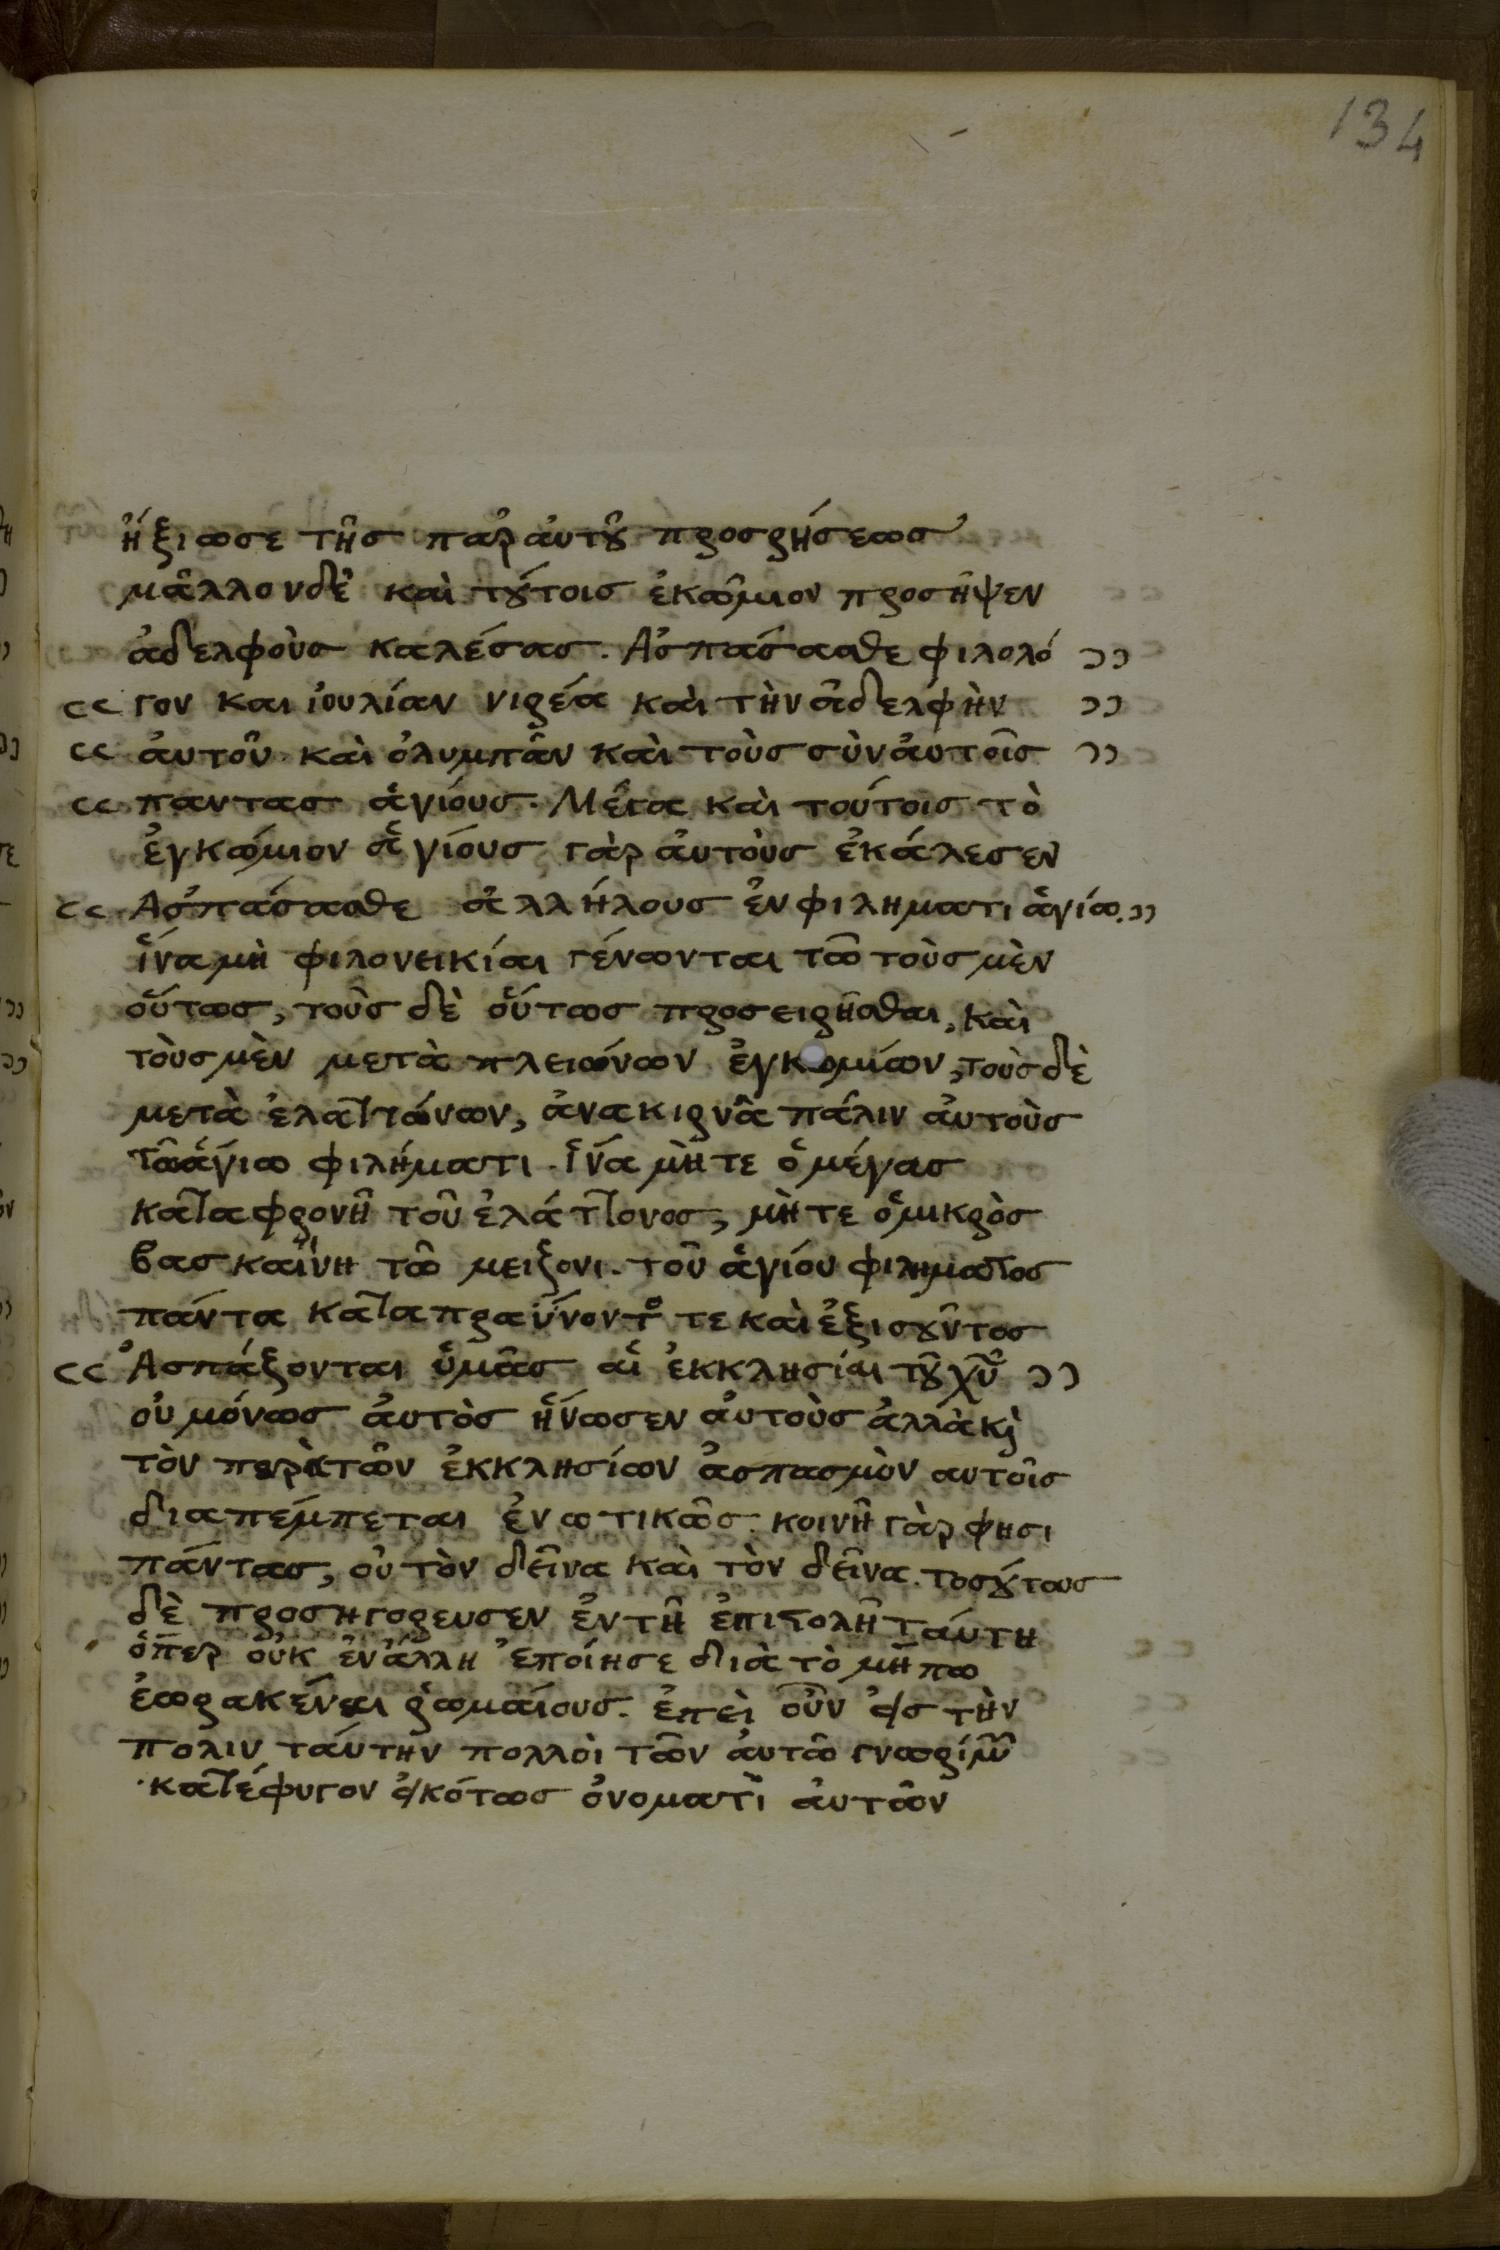 134
ἠξίωσε τῆσ παρ ἀυτȣ̂ προσρήσεωσ
μᾶλλον δὲ καὶ τȣ́τοισ ἐκώμιον προσῆψεν
ἀδελφοὺσ καλέσασ. Ἀσπάσασθε φιλολό ͻͻ
ϲϲ γον και ἰουλίαν νιρέα καὶ τὴν ἀδελφὴν ͻͻ
ϲϲ ἀυτοῦ. καὶ ὀλυμπᾶν καὶ τοὺσ σὺν ἀυτοῖσ ͻͻ
ϲϲ παντασ ἁγίουσ. Μέγα καὶ τούτοισ τὸ
ἐγκώμιον ἁγίουσ γὰρ ἀυτοὺσ ἐκάλεσεν
ϲϲ Ἀσπάσασθε ἀλλήλουσ ἐν φιληματι ἁγίω. ͻͻ
ἵνα μὴ φιλονεικίαι γένωνται τῶ τοὺσ μὲν
οὕτωσ, τοὺσ δὲ οὕτωσ προσειρῆσθαι, καὶ
τοὺσ μὲν μετὰ πλειώνων ἐγκωμίων, τοὺσ δὲ
μετὰ ἐλαττώνων, ἀνακιρνᾶ πάλιν ἀυτοὺσ
τῶ ἁγίω φιλήματι. ἵνα μὴτε ὁ μέγασ
καταφρονῆ τοῦ ἐλάττονοσ, μὴτε ὁ μικρὸσ
βασκαίνη τῶ μειζονι. τοῦ ἁγίου φιληματοσ
πάντα καταπραΰνοντο͂ τε καὶ ἐξισȣ̂ντοσ
ϲϲ Ἀσπάζονται ὑμᾶσ αἱ ἐκκλησίαι τȣ̂ χῦ ͻͻ
οὐ μόνωσ ἀυτὸσ ἥνωσεν ἀυτοὺσ ἀλλὰ κὶ
τὸν παρὰ τῶν ἐκκλησίων ἀσπασμὸν αυτοῖσ
διαπέμπεται ἐνωτικῶσ. κοινῆ γὰρ φησι
πάντασ, οὐ τὸν δεῖνα καὶ τὸν δεῖνα. τοσȣ́τουσ
δὲ προσηγορευσεν ἐν τῆ ἐπιστολῆ ταύτη
ὅπερ οὐκ ἐν ἄλλη ἐποίησε διὰ τὸ μήπω
ἑωρακέναι ῥωμαίουσ. ἐπεὶ οὖν εἰσ τὴν
πολιν ταύτην πολλοὶ τῶν ἀυτῶ γνωρίμων
κατέφυγον εἰκότωσ ὀνοματὶ ἀυτῶν